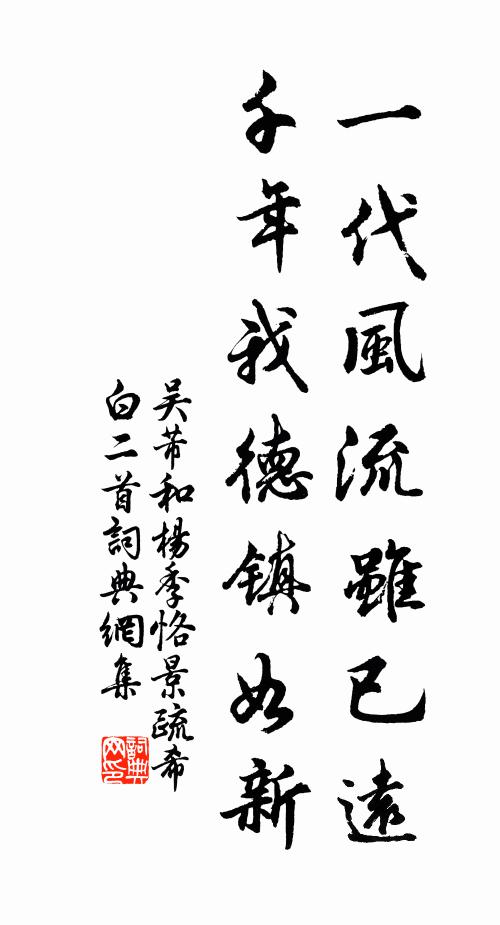 一代風流雖已遠
千年我德鎮如新
吴芾和楊季恪景疏希
白二首詞典網集
詞典
网印